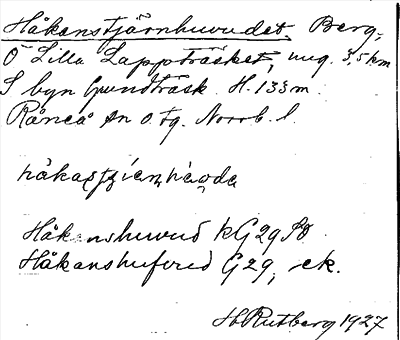 Håkanstjärnhuvudet. Berg,
Ö Lilla Lappträsket, ung. 3,5 km
S byn Gundträsk. H. 133 m.
Råneå sn o. tg. Norrb. l.
Håkanshuvud kG 29
Håkanshufvud G 29, ek.
H Rutberg 1927